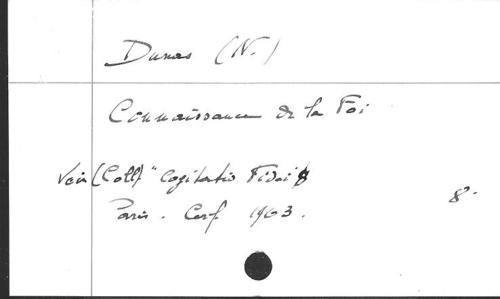 Dunas (N.)
Connaissance de la Foi
Voir (Coll) "Cogitatio Fidei" 8
Paris. Cerf 1963.
8°